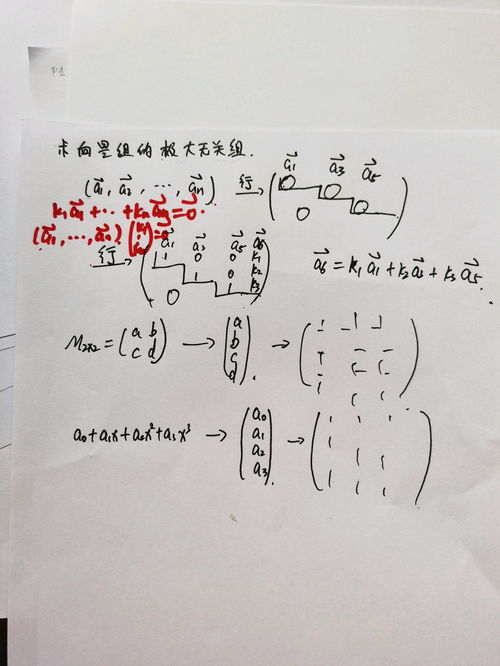 P1
求向量组的极大无关组.
a⃗1 a⃗3 a⃗5
(a⃗1, a⃗2, ..., a⃗n) 行→ ( 0 0 0 0 )
k1a⃗1+...+kna⃗n=0⃗.
(a⃗1, ..., a⃗n) (k1 ⋮ kn)=0⃗
a⃗1 a⃗3 a⃗5 a⃗6
行→ ( 1 0 0 k1
1 0 k2
0 1 k3 )
a⃗6 = k1a⃗1+k2a⃗3+k3a⃗5.
M2×2 = (a b c d) → (a b c d). → ( )
a0+a1x+a2x²+a3x³ → (a0 a1 a2 a3). → ( )